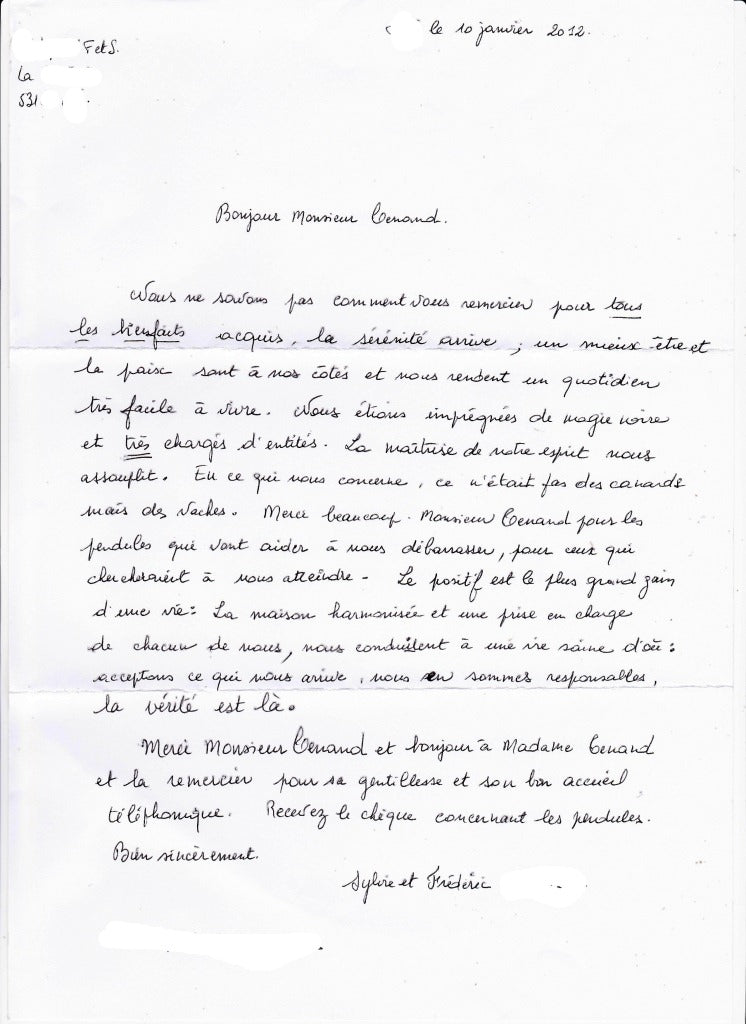 le 10 janvier 2012.
F et S.
La
531
Bonjour Monsieur Cenand.
Nous ne savons pas comment vous remercier pour tous
les bienfaits acquis, la sérénité arrive ; un mieux être et
la paix sont à nos côtés et nous rendent un quotidien
très facile à vivre. Nous étions imprégnées de magie noire
et très chargés d'entités. La maîtrise de notre esprit nous
assouplit. En ce qui nous concerne, ce n'était pas des canards
mais des vaches. Merci beaucoup. Monsieur Cenand pour les
pendules qui vont aider à nous débarrasser, pour ceux qui
chercheraient à nous atteindre - Le positif est le plus grand gain
d'une vie : La maison harmonisée et une prise en charge
de chacun de nous, nous conduisent à une vie saine d'où :
acceptons ce qui nous arrive, nous en sommes responsables,
la vérité est là.
Merci Monsieur Cenand et bonjour à Madame Cenand
et la remercier pour sa gentillesse et son bon accueil
téléphonique. Recevez le chèque concernant les pendules.
Bien sincèrement.
Sylvie et Frédéric